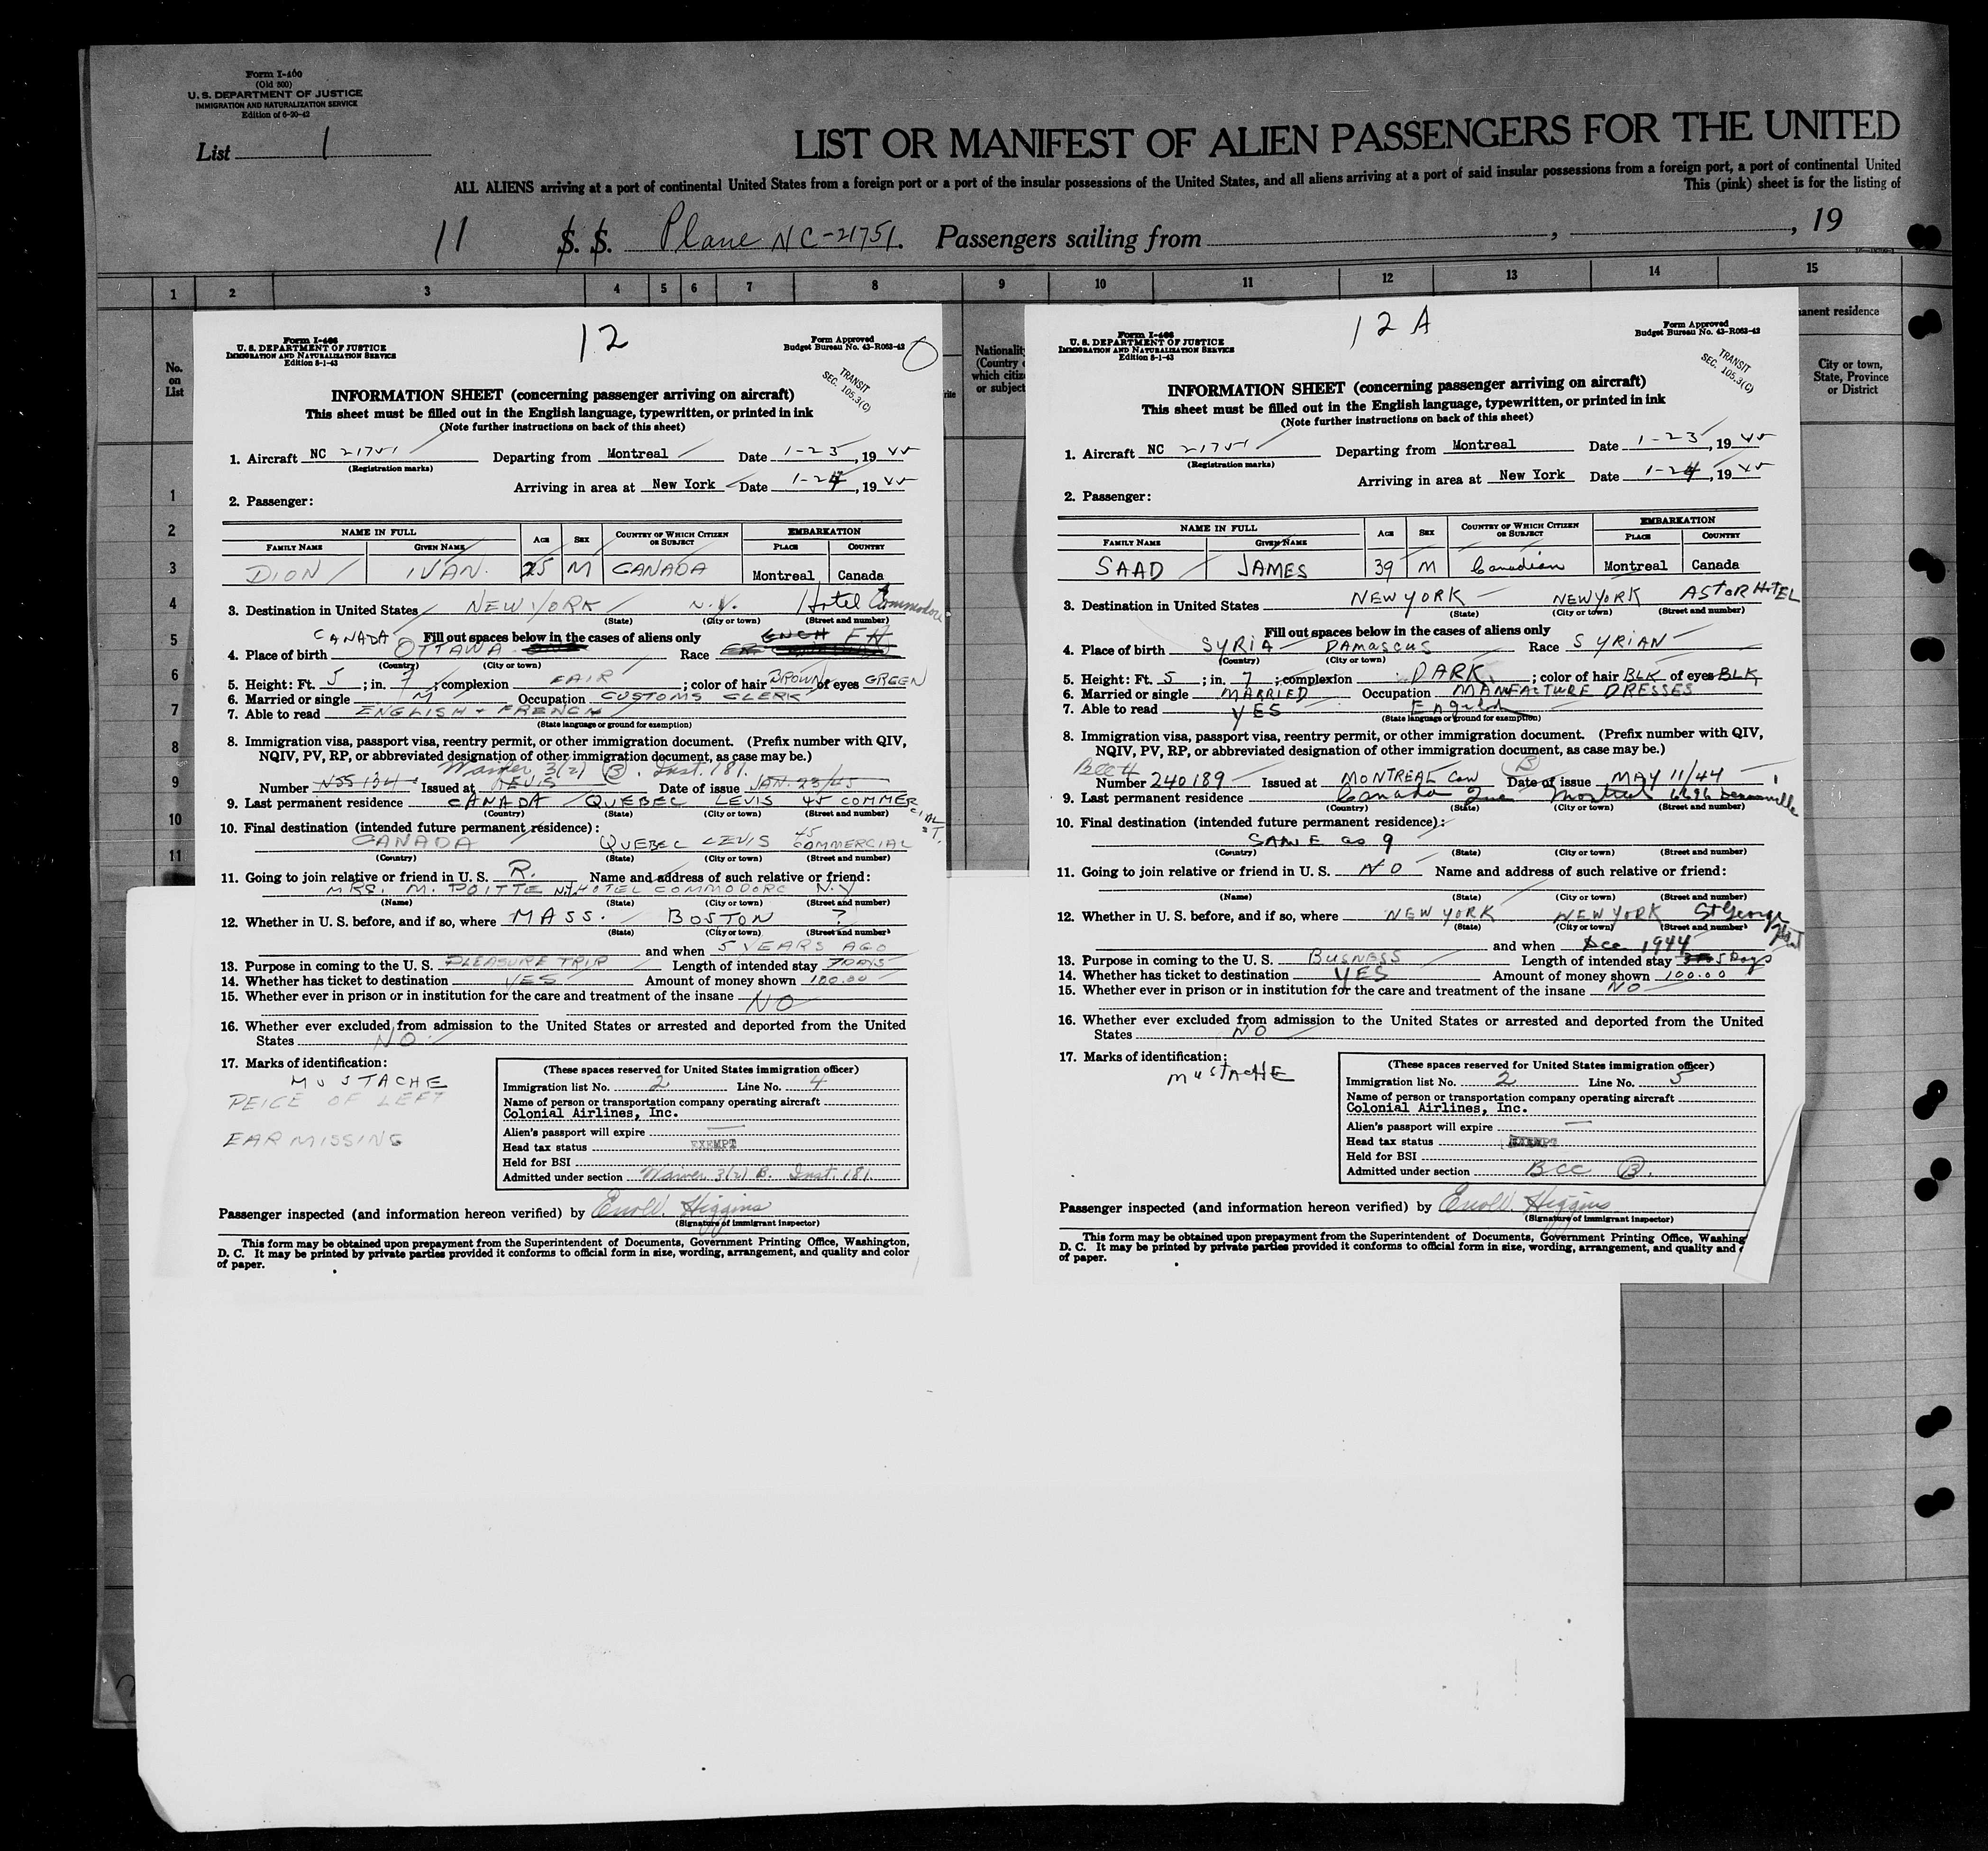 Form I-400
(Old 500)
U. S. DEPARTMENT OF JUSTICE
IMMIGRATION AND NATURALIZATION SERVICE
Edition of 6-20-42
List 1
LIST OR MANIFEST OF ALIEN PASSENGERS FOR THE UNITED
ALL ALIENS arriving at a port of continental United States from a foreign port or a port of the insular possessions of the United States, and all aliens arriving at a port of said insular possessions from a foreign port, a port of continental United
This (pink) sheet is for the listing of
11 S. S. Plane NC-21751. Passengers sailing from , , 19
1 2 3 4 5 6 7 8 9 10 11 12 13 14 15
No.
on
List
Nationality
(Country
which citiz
or subject
anent residence
City or town,
State, Province
or District
1
2
3
4
5
6
7
8
9
10
11
12
Form I-466
U. S. DEPARTMENT OF JUSTICE
IMMIGRATION AND NATURALIZATION SERVICE
Edition 5-1-43
Form Approved
Budget Bureau No. 43-R063-42
TRANSIT
SEC. 105.3(C)
INFORMATION SHEET (concerning passenger arriving on aircraft)
This sheet must be filled out in the English language, typewritten, or printed in ink
(Note further instructions on back of this sheet)
1. Aircraft NC 21751 Departing from Montreal Date 1-23, 19 45
(Registration marks)
Arriving in area at New York Date 1-24, 19 45
2. Passenger:
NAME IN FULL AGE SEX COUNTRY OF WHICH CITIZEN OR SUBJECT EMBARKATION
FAMILY NAME GIVEN NAME PLACE COUNTRY
DION IVAN. 25 M CANADA Montreal Canada
3. Destination in United States NEW YORK N.Y. Hotel Commodore
(State) (City or town) (Street and number)
CANADA Fill out spaces below in the cases of aliens only
4. Place of birth OTTAWA Race FR
(Country) (City or town)
5. Height: Ft. 5; in. 7; complexion FAIR; color of hair BROWN of eyes GREEN
6. Married or single M Occupation CUSTOMS CLERK
7. Able to read ENGLISH + FRENCH
(State language or ground for exemption)
8. Immigration visa, passport visa, reentry permit, or other immigration document. (Prefix number with QIV,
NQIV, PV, RP, or abbreviated designation of other immigration document, as case may be.)
Waiver 3(2) B. Inst. 181.
Number NSS 134 Issued at LEVIS Date of issue JAN. 23/45
9. Last permanent residence CANADA QUEBEC LEVIS 45 COMMERCIAL ST.
(Country) (State) (City or town) (Street and number)
10. Final destination (intended future permanent residence):
CANADA QUEBEC LEVIS 45 COMMERCIAL
(Country) (State) (City or town) (Street and number)
11. Going to join relative or friend in U. S. R. Name and address of such relative or friend:
MRS. M. POITTE N.Y. HOTEL COMMODORE N.Y
(Name) (State) (City or town) (Street and number)
12. Whether in U. S. before, and if so, where MASS. BOSTON ?
(State) (City or town) (Street and number)
and when 5 YEARS AGO
13. Purpose in coming to the U. S. PLEASURE TRIP Length of intended stay 7 DAYS
14. Whether has ticket to destination YES Amount of money shown 100.00
15. Whether ever in prison or in institution for the care and treatment of the insane NO
16. Whether ever excluded from admission to the United States or arrested and deported from the United
States NO.
17. Marks of identification:
MUSTACHE
PEICE OF LEFT
EAR MISSING
(These spaces reserved for United States immigration officer)
Immigration list No. 2 Line No. 4
Name of person or transportation company operating aircraft
Colonial Airlines, Inc.
Alien's passport will expire —
Head tax status EXEMPT
Held for BSI
Admitted under section Waiver 3(2) B. Inst. 181.
Passenger inspected (and information hereon verified) by Enoll. Higgins
(Signature of immigrant inspector)
This form may be obtained upon prepayment from the Superintendent of Documents, Government Printing Office, Washington,
D. C. It may be printed by private parties provided it conforms to official form in size, wording, arrangement, and quality and color
of paper.
12 A
Form I-466
U. S. DEPARTMENT OF JUSTICE
IMMIGRATION AND NATURALIZATION SERVICE
Edition 5-1-43
Form Approved
Budget Bureau No. 43-R063-42
TRANSIT
SEC. 105.3(C)
INFORMATION SHEET (concerning passenger arriving on aircraft)
This sheet must be filled out in the English language, typewritten, or printed in ink
(Note further instructions on back of this sheet)
1. Aircraft NC 21751 Departing from Montreal Date 1-23, 19 45
(Registration marks)
Arriving in area at New York Date 1-24, 19 45
2. Passenger:
NAME IN FULL AGE SEX COUNTRY OF WHICH CITIZEN OR SUBJECT EMBARKATION
FAMILY NAME GIVEN NAME PLACE COUNTRY
SAAD JAMES 39 M Canadian Montreal Canada
3. Destination in United States NEW YORK NEW YORK ASTOR HOTEL
(State) (City or town) (Street and number)
Fill out spaces below in the cases of aliens only
4. Place of birth SYRIA DAMASCUS Race SYRIAN
(Country) (City or town)
5. Height: Ft. 5; in. 7; complexion DARK; color of hair BLK of eyes BLK
6. Married or single MARRIED Occupation MANFACTURE DRESSES
7. Able to read YES English
(State language or ground for exemption)
8. Immigration visa, passport visa, reentry permit, or other immigration document. (Prefix number with QIV,
NQIV, PV, RP, or abbreviated designation of other immigration document, as case may be.)
Number 240189 Issued at MONTREAL Can B Date of issue MAY 11/44
9. Last permanent residence Canada Que Montreal 6696
(Country) (State) (City or town) (Street and number)
10. Final destination (intended future permanent residence):
SAME as 9
(Country) (State) (City or town) (Street and number)
11. Going to join relative or friend in U. S. NO Name and address of such relative or friend:
(Name) (State) (City or town) (Street and number)
12. Whether in U. S. before, and if so, where NEW YORK NEW YORK St George Hotel
(State) (City or town) (Street and number)
and when Dec 1944
13. Purpose in coming to the U. S. BUSNESS Length of intended stay 5 Days
14. Whether has ticket to destination YES Amount of money shown 100.00
15. Whether ever in prison or in institution for the care and treatment of the insane NO
16. Whether ever excluded from admission to the United States or arrested and deported from the United
States NO
17. Marks of identification:
MUSTACHE
(These spaces reserved for United States immigration officer)
Immigration list No. 2 Line No. 5
Name of person or transportation company operating aircraft
Colonial Airlines, Inc.
Alien's passport will expire —
Head tax status EXEMPT
Held for BSI
Admitted under section BCC B.
Passenger inspected (and information hereon verified) by Enoll. Higgins
(Signature of immigrant inspector)
This form may be obtained upon prepayment from the Superintendent of Documents, Government Printing Office, Washing
D. C. It may be printed by private parties provided it conforms to official form in size, wording, arrangement, and quality and
of paper.